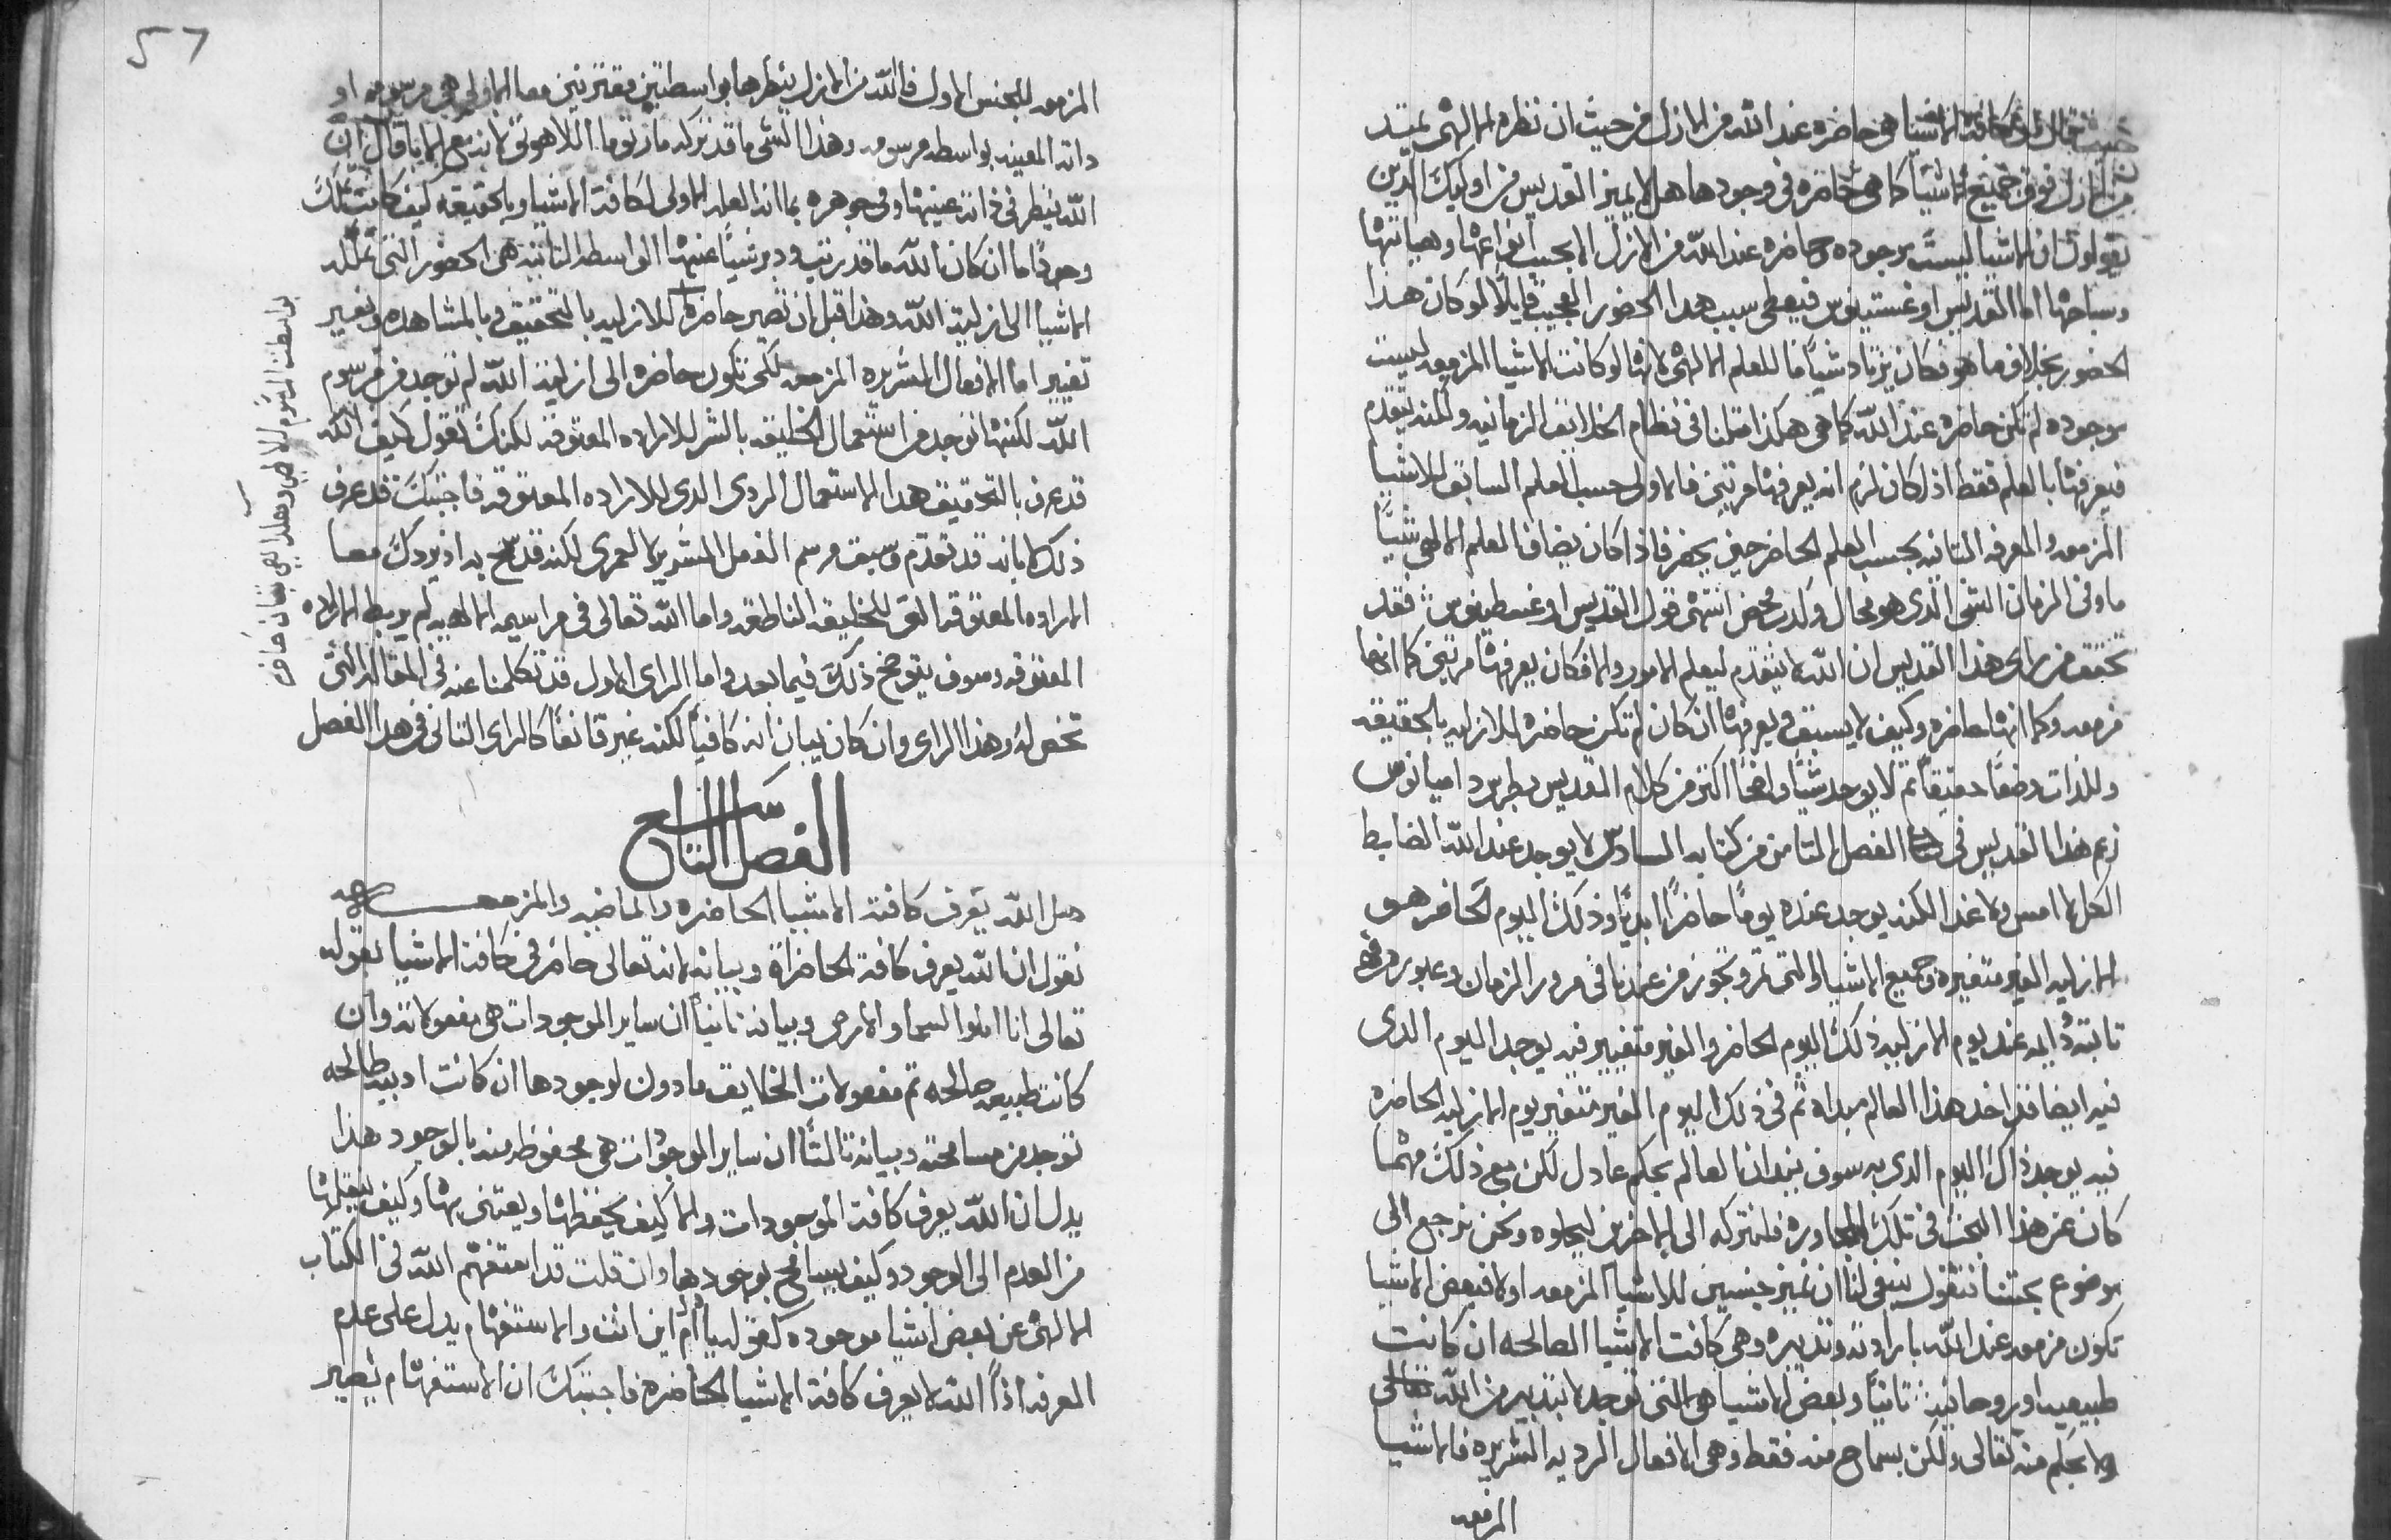 حيث قال ان كافة الاشيا هي حاضره عند الله من الازل من حيث ان نظره الالهي يمتد
من الازل فوق جميع الاشيا كما هي حاضره في وجودها هل لا يميز القديس من اوليك الذين
يقولون ان الاشيا ليست موجوده وحاضره عند الله من الازل الا بحسب انواعها وهياتها
وسباحها اما القديس اوغستينوس فيعطي سبب هدا الحضور العجيب قايلا لو كان هذا
الحضور بخلاف ما هو فكان يزداد شيا ما للعلم الالهي لانها لو كانت الاشيا المزمعه ليست
موجوده لم تكن حاضره عند الله كما هي هكذا مثلنا في نظام الخلايق الزمانيه ولكنه يتقدم
فيعرفها بالعلم فقط اذ لكان لزم انه يعرفها مرتين فالاولى حسب العلم السابق للاشيا
المزمعه والمعرفه التانيه بحسب العلم الحاضر حين يحضر فاذا كان يضاف العلم الالهي شيا
ما وفي الزمان الشي الدي هو محال وكدب محض انتهى قول القديس اوغسطينوس فقد
تحقق من راى هذا القديس ان الله لا يتقدم ليعلم الامور والا فكان يعرفها مرتين كما انها
مزمعه وكما انها حاضره وكيف لا يسبق ويعرفها ان كان لم تكن حاضره للازليه بالحقيقه
وللذات وضعا حقيقا ثم لا يوجد شيا واضحا اكتر من كلام القديس بطرس داميانوس
زعم هذا القديس في الفصل التامن من كتابه السادس لا يوجد عند الله الضابط
الكل لا امس ولا غدا لكنه يوجد عنده يوما حاضرا ابديا وذلك اليوم الحاضر هو
الازليه الغير متغيره وجميع الاشيا التي تمر وتجوز من عندنا في مرور الزمان وعبوره هي
تابتة دايمه عند يوم الازليه ذلك اليوم الحاضر والغير متغيير فيه يوجد اليوم الدى
فيه ايضا قد اخد هذا العالم مبداه ثم في ذلك اليوم الغير متغير يوم الازليه الحاضره
فيه يوجد ذاك اليوم الدى به سوف يدان العالم بحكم عادل لكن مع ذلك مهما
كان عن هذا البحث في تلك المحاوره فلنتركه الى الاخرين ليحلوه ونحن نرجع الى
موضوع بحتنا فنقول ينبغي لنا ان نميز جنسين للاشيا المزمعه اولا فبعض الاشيا
تكون مزمعه عند الله بارادته وتدبيره وهى كافت الاشيا الصالحه ان كانت
طبيعيه او روحانيه تانيا وبعض الاشيا هي التي توجد لا بتدبير من الله تعالى
ولا بحكم منه تعالى ولكن بسماح منه فقط وهى الافعال الرديه الشريره فالاشيا
المزمعه
57
المزمعه للجنس الاول فالله من الازل ينظرها بواسطتين مقترنتين معا الاولى هي مرسومه او
داته المعينه بواسطه مرسومه وهذا الشي ما قد تركه مار توما اللاهوتي لانه مع الابا قال ان
الله ينظر في ذاته عينها وفي جوهره بما انه العله الاولى لكافة الاشيا وبالحقيقه كيف كانت تلك
وجودا ما ان كان الله ما قد رتب ودبر شيا عنها الواسطه التانيه هي الحضور التي تمثله
الاشيا الى ازلية الله وهذا قبل ان تصير حاضرة للازليه بالتحقيق وبالمشاهده وتغيير
تغيير اما الافعال الشريره المزمعه لكي تكون حاضره الى ازلية الله لم توجد من مرسوم
الله لكنها توجد من استعمال الخليقه بالشر للاراده المعتوقه لكنك تقول كيف الله
قد عرف بالتحقيق هدا الاستعمال الردى الدي للاراده المعتوقه فاجبتك قد عرف
ذلك لانه قد تقدم وسبق مرسم الفعل الشرير لا لعمرى لكنه قد سمح به اذ يردك معا
الاراده المعتوقه القوى للخليقه الناطقه واما الله تعالى في مراسيمه الالهيه لم يربط الاراده
المعتوقه وسوف يتوضح ذلك فيما بعد واما الراى الاول قد تكلمنا عنه في المقاله التى
تخص له وهذا الراى وان كان يبان انه كافيا لكنه غير قانعا كالراى التانى في هدا الفصل
الفصل التاسع
هل الله يعرف كافة الاشيا الحاضره والماضيه والمزمعه
نقول ان الله يعرف كافة الحاضراة وبيانه لانه تعالى حاضر في كافة الاشيا بقوله
تعالى انا املوا السما والارض وبيانه تانيا ان ساير الموجودات هي مفعولاته وان
كانت طبيعه صالحه تم مفعولات الخلايق مادون لوجودها ان كانت ادبيه طالحه
توجد من مسامحته وبيانه تالتا ان ساير الموجودات هي محفوظه منه بالوجود هذا
يدل ان الله يعرف كافة الموجودات والا كيف يحفظها ويعتنى بها وكيف ينقلها
من العدم الى الوجود وكيف يسامح بوجودها وان قلت قد استفهم الله في الكتاب
الالهي عن بعض اشيا موجوده كقوله يا ادم اين انت والاستفهام يدل على عدم
المعرفه اذا الله لا يعرف كافة الاشيا الحاضره فاجبتك ان الاستفهام يصير